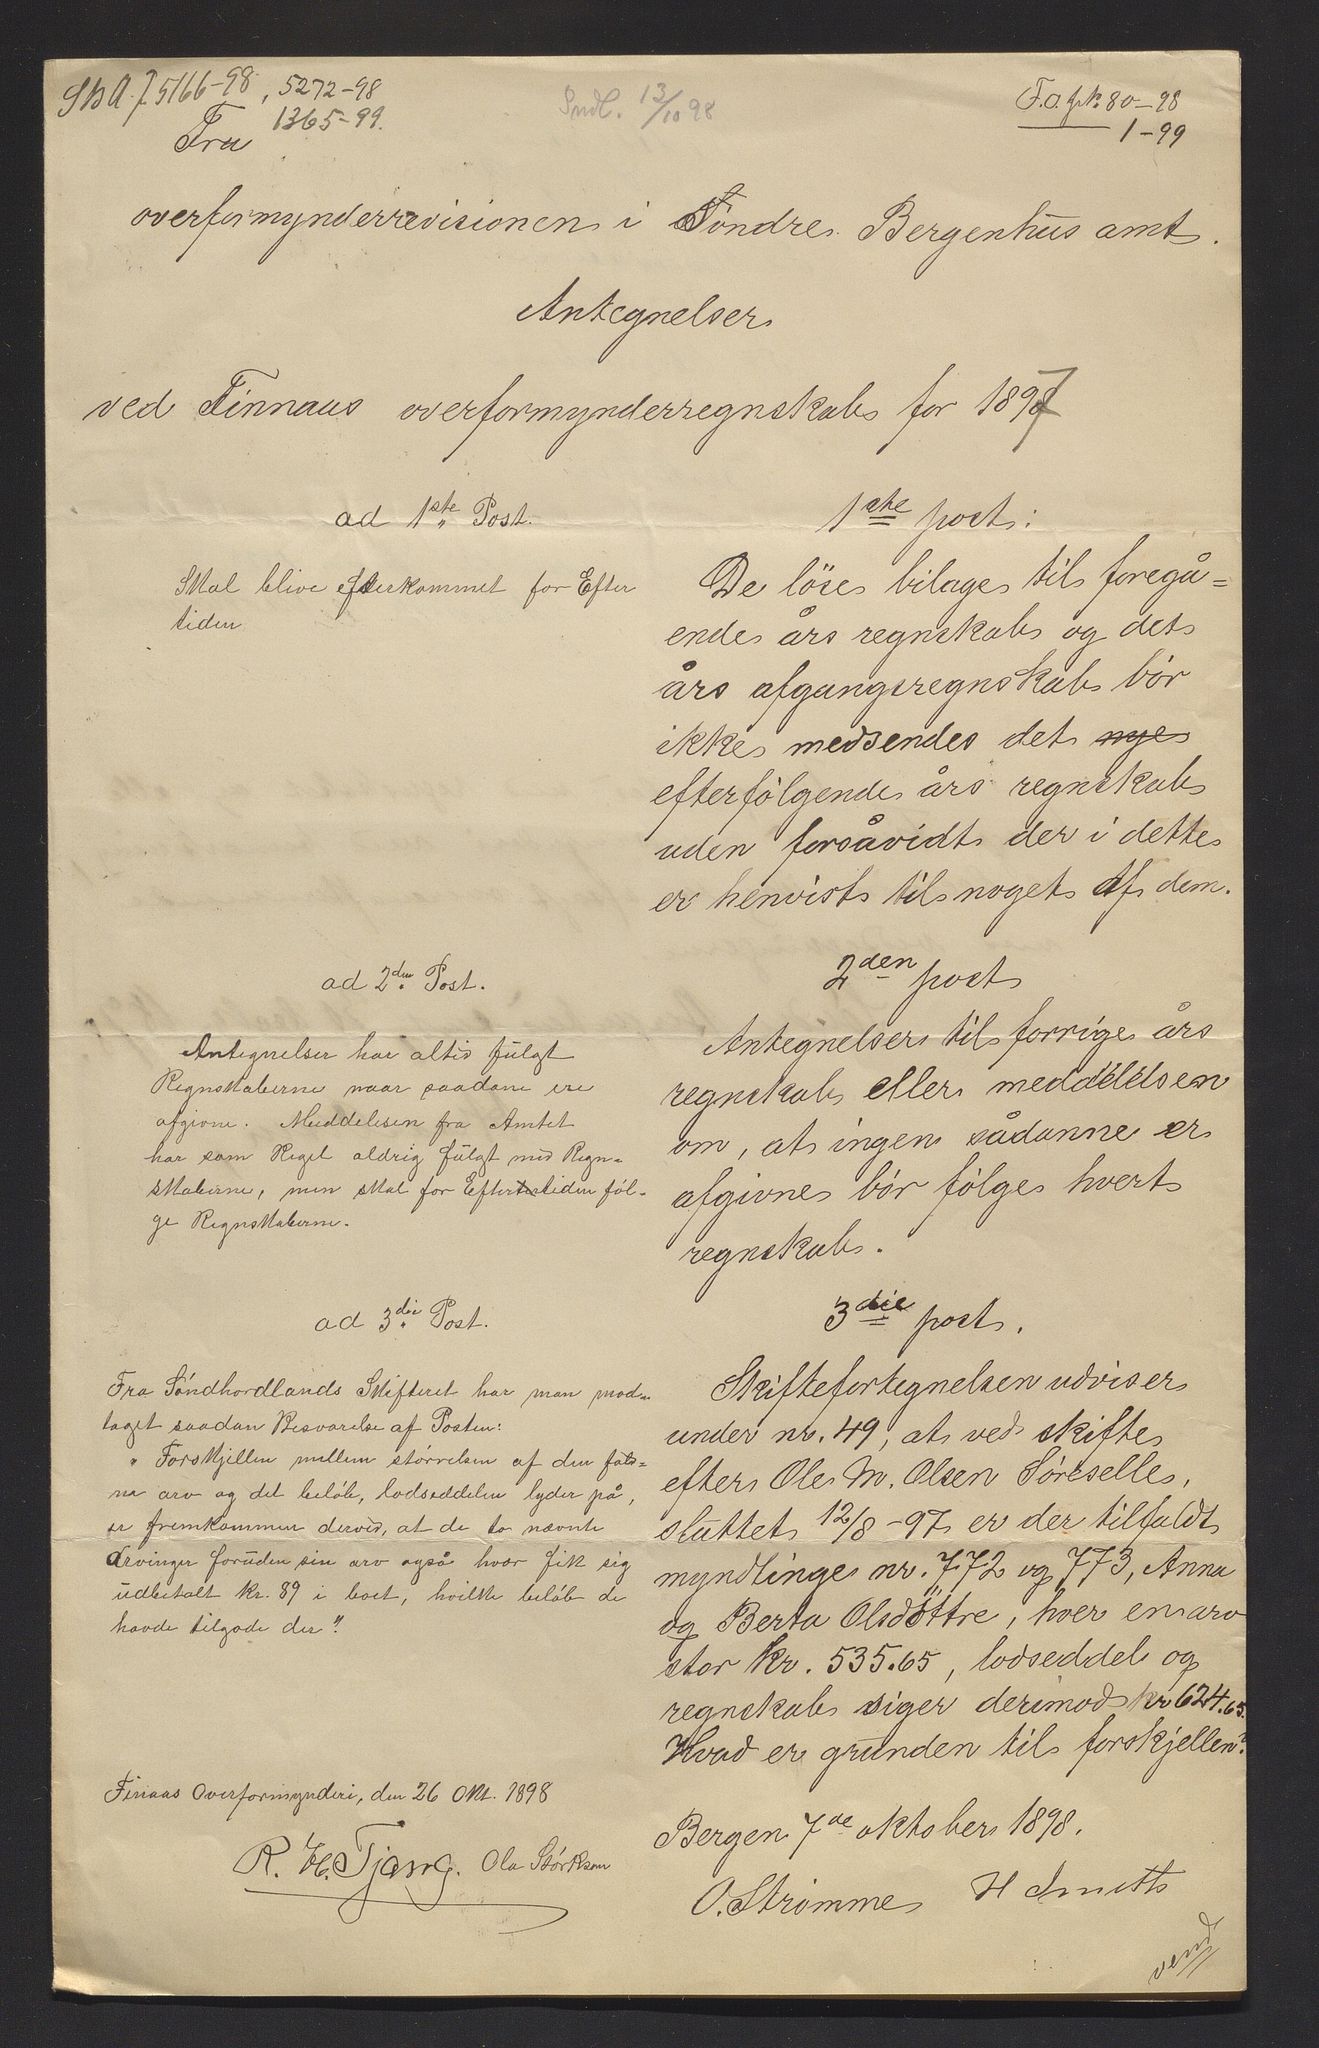 SBA. J. 5166-98, 5272-98
1365-99.
Indl. 13/10 98
F.O. jr.№ 80-98
1-99
Fra
overformynderrevisionen i Söndre Bergenhus amt.
Antegnelser
ved Finnaas overformynderregnskab for 1897
1ste post:
De löse bilage til foregå=
ende års regnskab og det
års afgangsregnskab bör
ikke medsendes det nye
efterfölgende års regnskab
uden forsåvidt der i dette
er henvist til noget af dem.
2den post
Antegnelser til forrige års
regnskab eller meddelelsen
om, at ingen sådanne er
afgivne bör fölge hvert
regnskab.
3die post.
Skiftefortegnelsen udviser
under nr. 49, at ved skifte
efter Ole M. Olsen Söreselle,
sluttet 12/8-97 er der tilfaldt
myndlinge nr. 772 og 773, Anna
og Berta Olsdöttre, hver en arv
stor kr. 535.65, lodseddel og
regnskab siger derimod kr 624.65.
Hvad er grunden til forskjellen?
Bergen 7de oktober 1898.
O. Strömme H Smitt
vend
ad 1ste Post.
Skal blive efterkommet for Efter
tiden
ad 2den Post.
Antegnelser har altid fulgt
Regnskaberne naar saadane ere
afgivne. Meddelelsen fra Amtet
har som Regel aldrig fulgt med Regn=
skaberne, men skal for Eftertiden föl=
ge Regnskaberne.
ad 3die Post.
Fra Söndhordlands Skifteret har man mod=
taget saadan Besvarelse af Posten:
"Forskjellen mellem störrelsen af den fald=
ne arv og det belöb, lodseddelen lyder på,
er fremkommen derved, at de to nævnte
Arvinger foruden sin arv også hver fik sig
udbetalt kr. 89 i boet, hvilke belöb de
havde tilgode der".
Finaas Overformynderi, den 26 Okt. 1898
R. H. Tjong. Ola Störksen